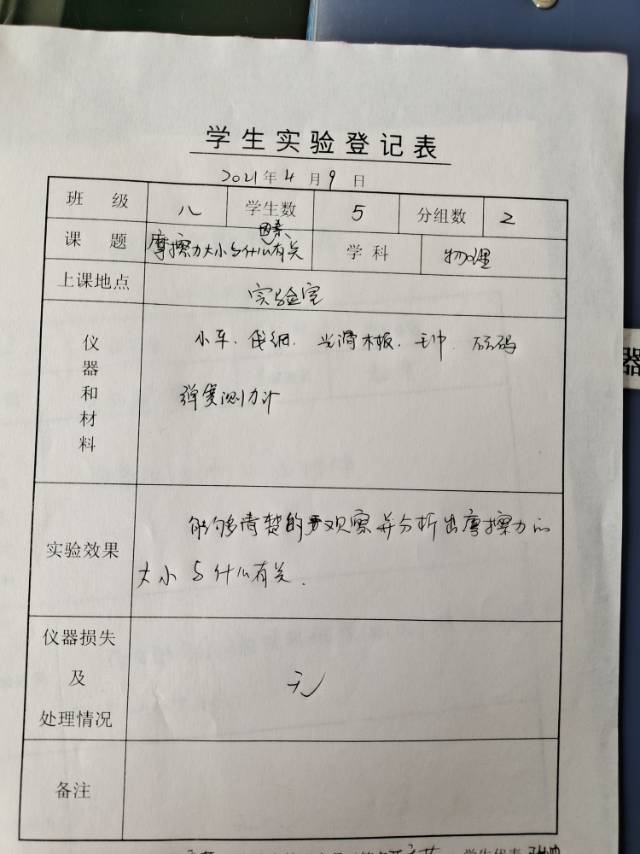 学生实验登记表
2021年4月9日
班级 八 学生数 5 分组数 2
课题 摩擦力大小与什么因素有关 学科 物理
上课地点 实验室
仪器和材料 小车、 光滑木板、毛巾、砝码
弹簧测力计
实验效果 能够清楚的观察并分析出摩擦力的
大小与什么有关.
仪器损失及处理情况 无
备注
器
学生代表